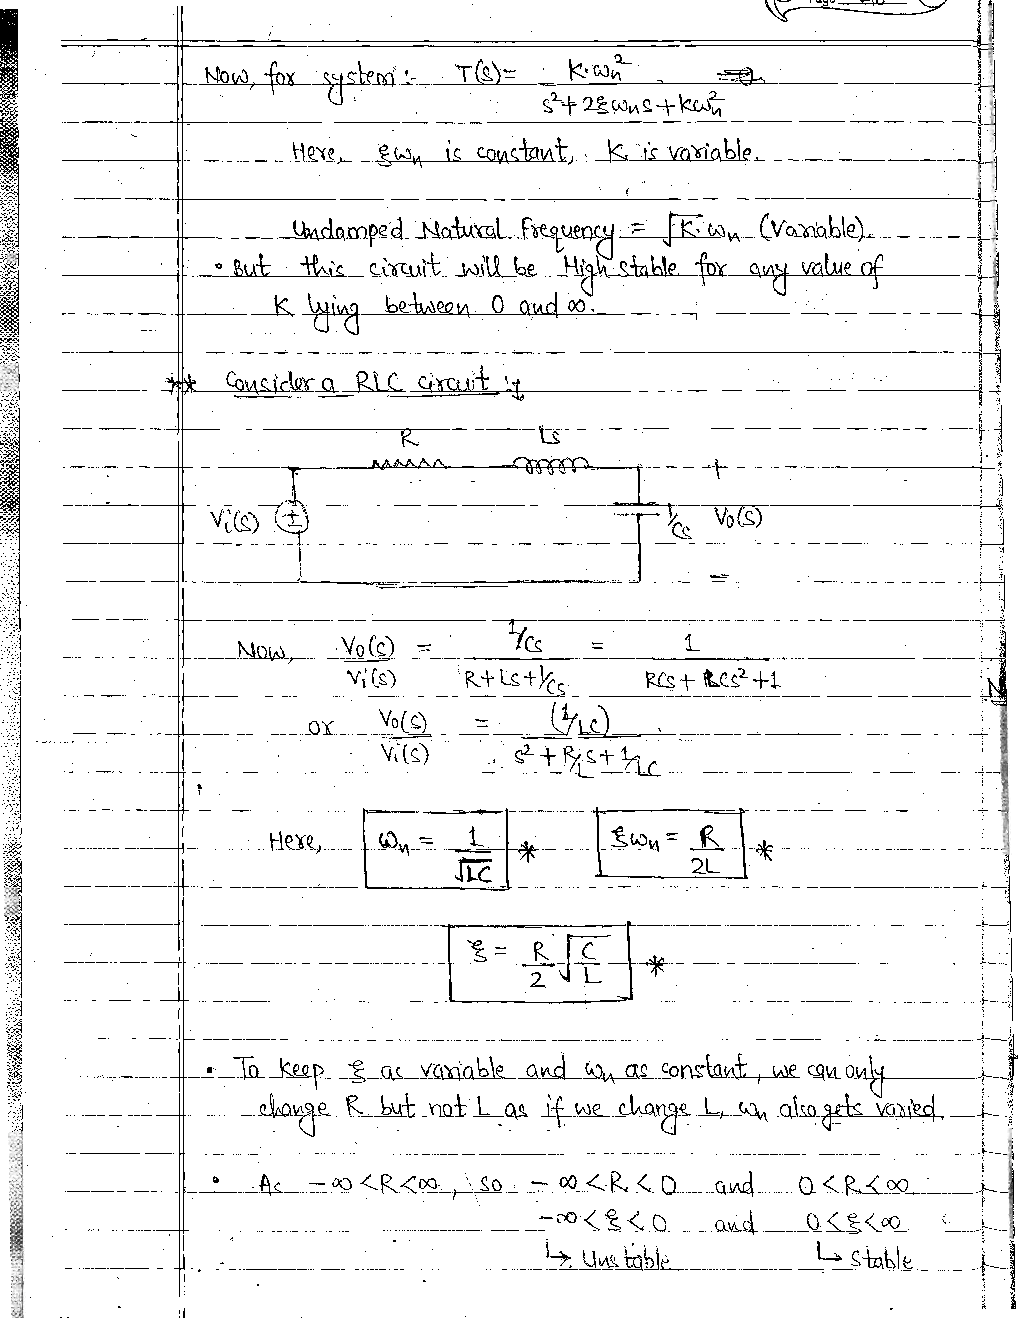 Now, for system :- T(s) = K.ωn² / s² + 2ξωns + Kωn²
Here, ξωn is constant, K is variable.
Undamped Natural Frequency = √K.ωn (Variable).
• But this circuit will be High stable for any value of
K lying between 0 and ∞.
** Consider a RLC circuit :↓
R Ls
+
Vi(s) ± 1/Cs Vo(s)
-
Now, Vo(s)/Vi(s) = 1/Cs / R+Ls+1/Cs = 1 / RCs + LCs² + 1
or Vo(s)/Vi(s) = (1/LC) / s² + R/L s + 1/LC
Here, ωn = 1/√LC * ξωn = R/2L *
ξ = R/2 √C/L *
• To keep ξ as variable and ωn as constant, we can only
change R but not L as if we change L, ωn also gets varied.
• As -∞ <R<∞, so -∞ <R<0 and 0<R<∞
-∞<ξ<0 and 0<ξ<∞
↳ Unstable ↳ Stable